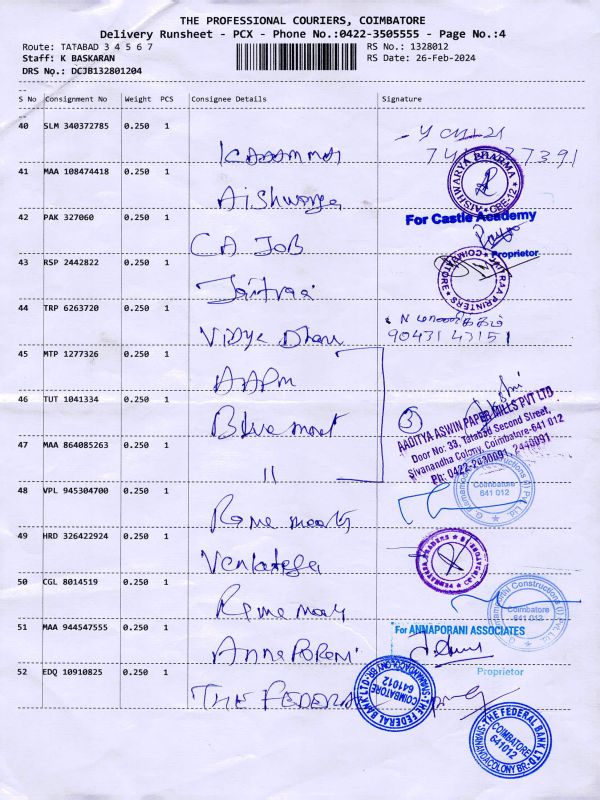 THE PROFESSIONAL COURIERS, COIMBATORE
Delivery Runsheet - PCX - Phone No.:0422-3505555 - Page No.:4
Route: TATABAD 3 4 5 6 7
RS No.: 1328012
Staff: K BASKARAN
RS Date: 26-Feb-2024
DRS No.: DCJB132801204
S No Consignment No Weight PCS Consignee Details Signature
40 SLM 340372785 0.250 1
41 MAA 108474418 0.250 1
Aishwarya
AISHWARYA PHARMA CBE-12
42 PAK 327060 0.250 1
For Castle Academy
Proprietor
CA JOB
43 RSP 2442822 0.250 1
JAITRAA PRINTERS COIMBATORE
Jaitraa
44 TRP 6263720 0.250 1
Vidya Dhara
45 MTP 1277326 0.250 1
AAPM
46 TUT 1041334 0.250 1
Blue mont
3
AADITYA ASWIN PAPER MILLS PVT LTD
Door No: 33, Tatabad Second Street,
Sivanandha Colony, Coimbatore-641 012
47 MAA 864085263 0.250 1
"
Coimbatore
641 012
48 VPL 945304700 0.250 1
49 HRD 326422924 0.250 1
50 CGL 8014519 0.250 1
Coimbatore
641 012
51 MAA 944547555 0.250 1
For ANNAPORANI ASSOCIATES
Annaporani
Proprietor
52 EDQ 10910825 0.250 1
THE FEDERA
THE FEDERAL BANK LTD
SIVANANDACOLONY BR
COIMBATORE
641012
THE FEDERAL BANK LTD
SIVANANDACOLONY BR
COIMBATORE
641012